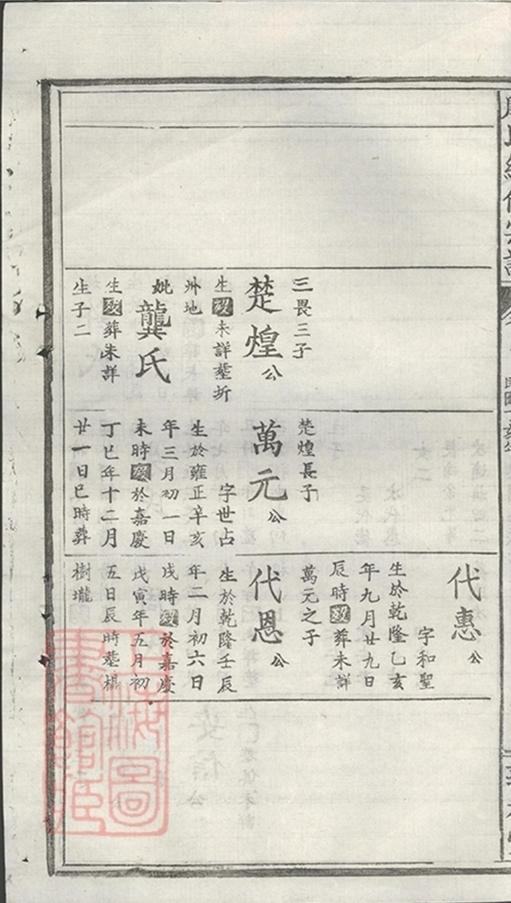 三畏三子
楚煌公
生歿未詳塟圻
州地
妣龔氏
生歿葬未詳
生子二
楚煌長子
萬元公
字世占
生於雍正辛亥
年三月初一日
未時歿於嘉慶
丁巳年十二月
廿一日巳時葬
樹壠
代惠公
字和聖
生於乾隆乙亥
年九月廿九日
辰時歿葬未詳
萬元之子
代恩公
生於乾隆壬辰
年二月初六日
戌時歿於嘉慶
戊寅年五月初
五日辰時塟楊